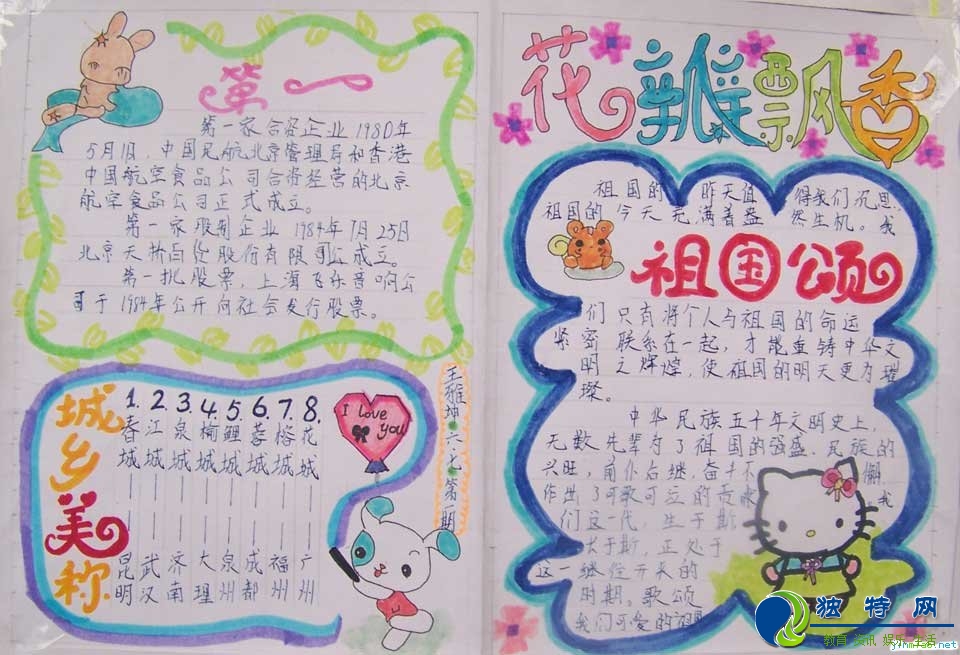 第一
第一家合资企业1980年
5月1日，中国民航北京管理局和香港
中国航空食品公司合资经营的北京
航空食品公司正式成立。
第一家股制企业1984年7月25日
北京天桥百货股份有限司公成立。
第一批股票，上海飞乐音响公
司于1984年公开向社会发行股票。
城乡美称
1.春城——昆明
2.江城——武汉
3.泉城——济南
4.榆城——大理
5.鲤城——泉州
6.蓉城——成都
7.榕城——福州
8.花城——广州
I love
you
王雅坤·六·七·第一期
花瓣飘香
祖国的昨天值得我们沉思
祖国的今天充满着盎然生机。我
祖国颂
们只有将个人与祖国的命运
紧密联系在一起，才能重铸中华文
明之辉煌，使祖国的明天更为璀
璨。
中华民族五千年文明史上，
无数先辈为了祖国的强盛、民族的
兴旺，前仆后继，奋斗不懈
作出了可歌可泣的贡献。我
们这一代，生于斯
长于斯，正处于
这一继往开来的
时期。歌颂
我们可爱的
独特网
教育 资讯 娱乐 生活